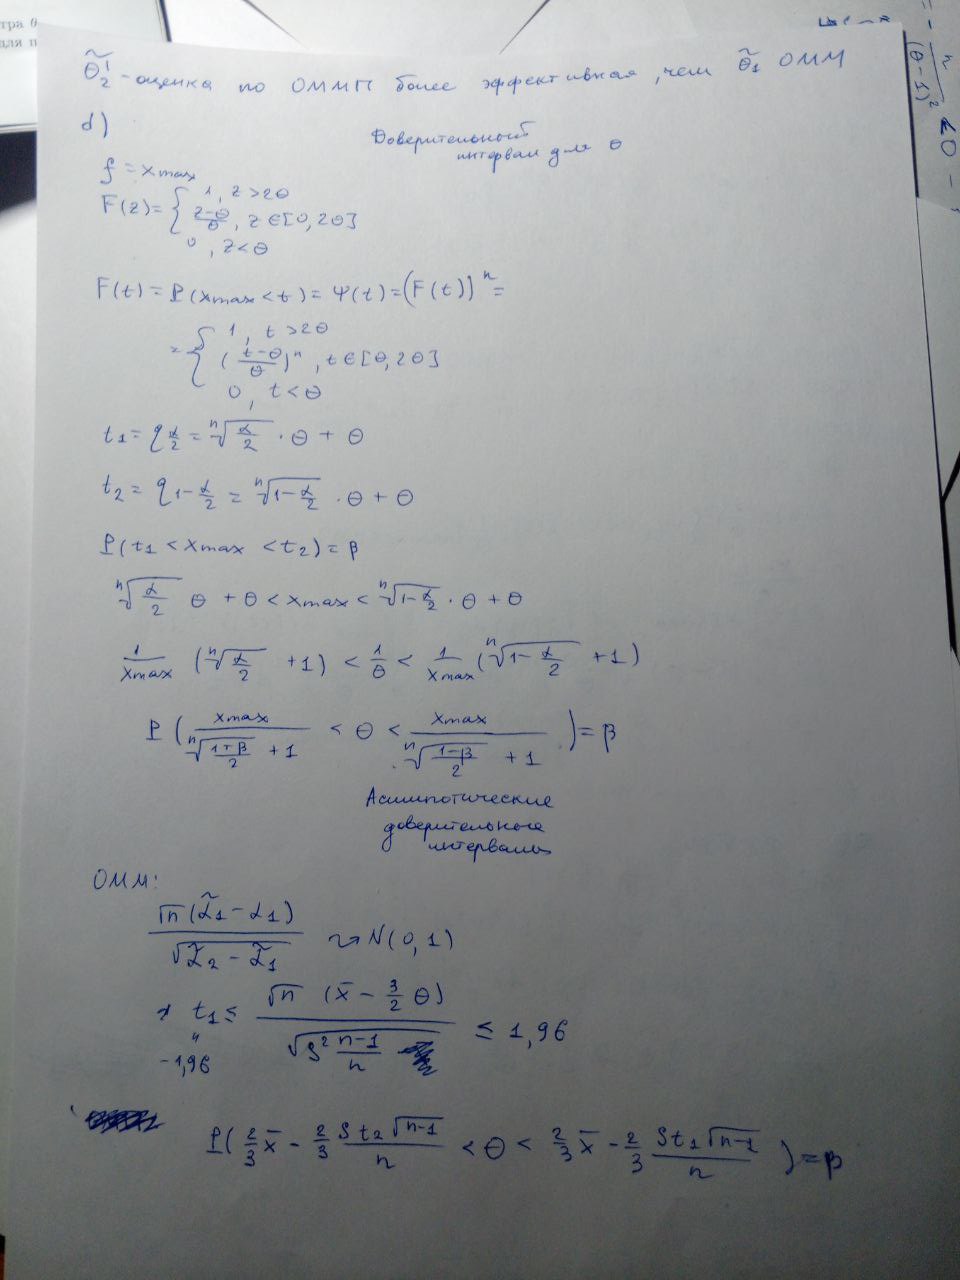 тра θ
для п
θ̃₂' - оценка по ОММП более эффективная, чем θ̃₁ ОММ
d)
Доверительный
интервал для θ
f = xmax
F(z) = { 1, z > 2θ
(z-θ)/θ, z ∈ [0, 2θ]
0, z < θ
F(t) = P(xmax < t) = Ψ(t) = (F(t))ⁿ =
= { 1, t > 2θ
((t-θ)/θ)ⁿ, t ∈ [θ, 2θ]
0, t < θ
t₁ = q_{α/2} = ⁿ√(α/2) · θ + θ
t₂ = q_{1-α/2} = ⁿ√(1-α/2) · θ + θ
P(t₁ < xmax < t₂) = β
ⁿ√(α/2) θ + θ < xmax < ⁿ√(1-α/2) · θ + θ
1/xmax (ⁿ√(α/2) + 1) < 1/θ < 1/xmax (ⁿ√(1-α/2) + 1)
P( xmax/(ⁿ√((1+β)/2) + 1) < θ < xmax/(ⁿ√((1-β)/2) + 1) ) = β
Асимптотические
доверительные
интервалы
ОММ:
√n (α̃₁ - α₁) / √(α̃₂ - α̃₁) ⤳ N(0, 1)
t₁ ≤ √n (x̄ - 3/2 θ) / √(S² (n-1)/n) ≤ 1,96
"
-1,96
P( 2/3 x̄ - 2/3 St₂√(n-1)/n < θ < 2/3 x̄ - 2/3 St₁√(n-1)/n ) = β